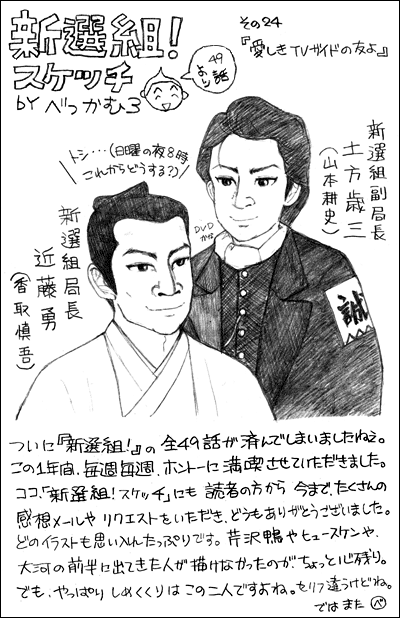 新選組!
スケッチ
BY べっかむ3
49話より
その24
『愛しきTVガイドの友よ』
トシ…(日曜の夜8時
これからどうする?)
新選組局長
近藤勇
(香取慎吾)
DVD
かな
新選組副局長
土方歳三
(山本耕史)
誠
ついに『新選組!』の全49話が済んでしまいましたねえ。
この1年間、毎週毎週、ホントーに満喫させていただきました。
ココ、「新選組!スケッチ」にも読者の方から今まで、たくさんの
感想メールやリクエストをいただき、どうもありがとうございました。
どのイラストも思い入れたっぷりです。芹沢鴨やヒュースケンや、
大河の前半に出てきた人が描けなかったのがちょっと心残り。
でも、やっぱりしめくくりはこの二人ですよね。セリフ違うけどね。
ではまた(べ)